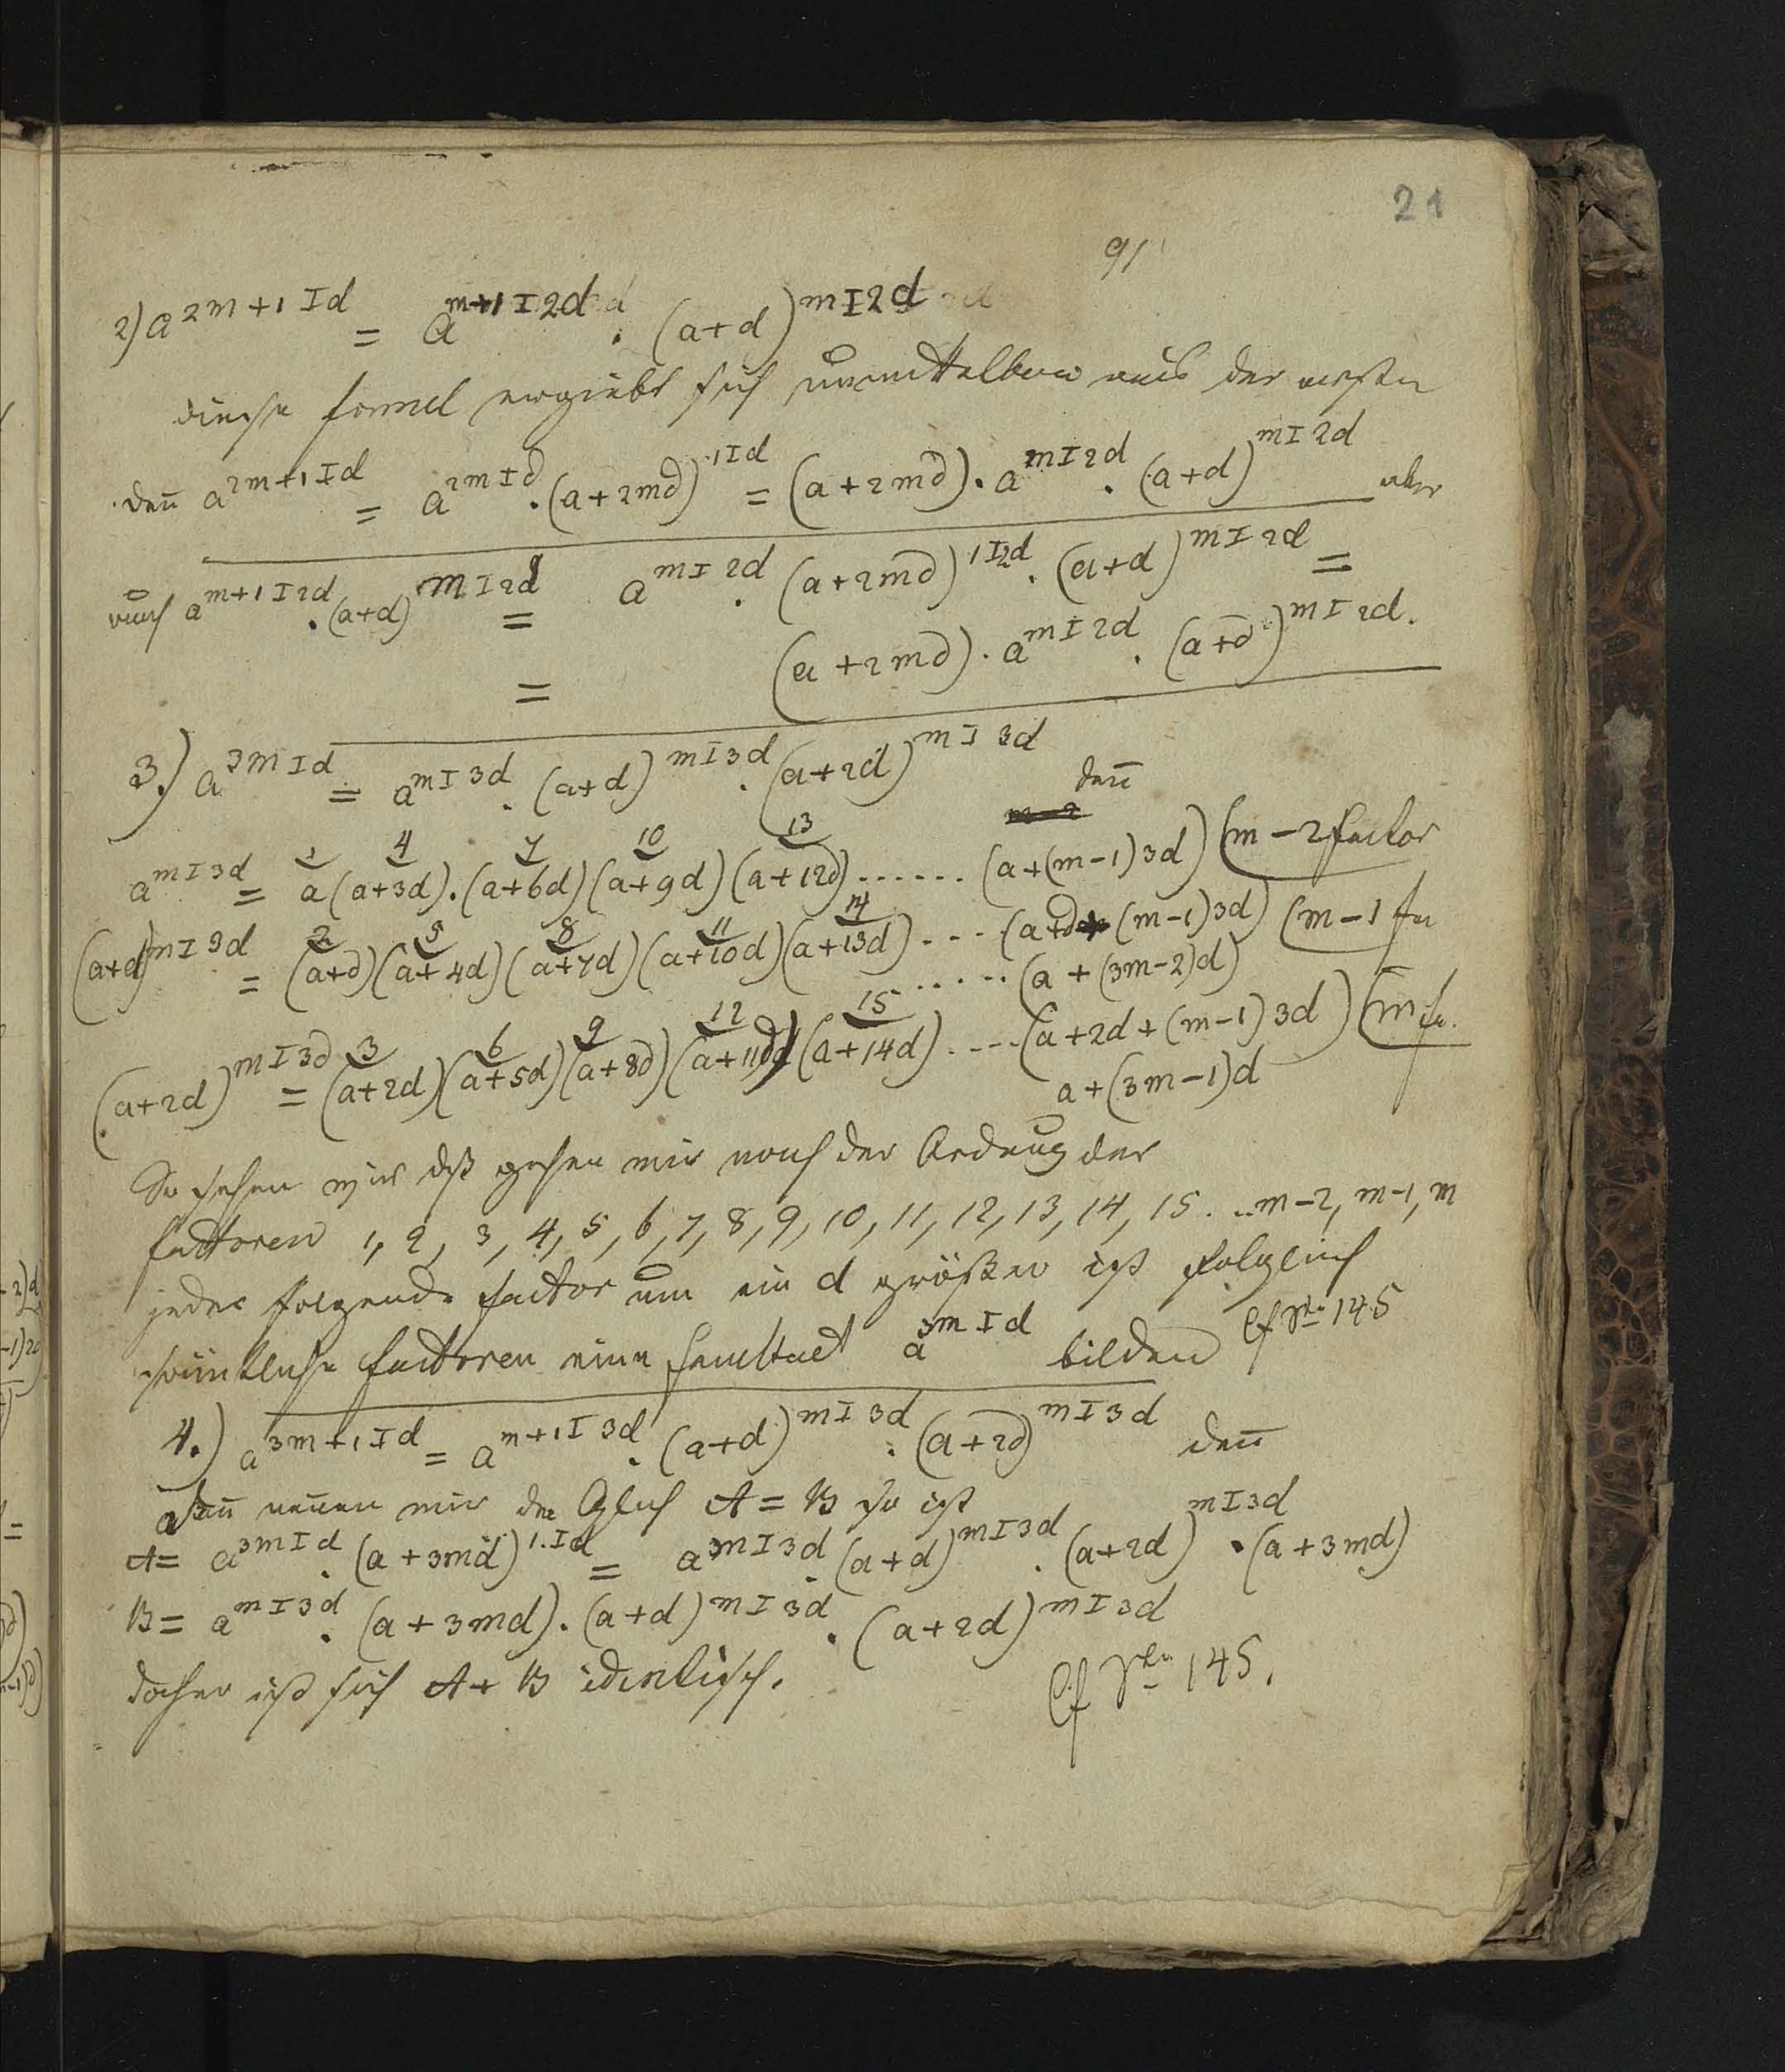 21
91
2) a^{2m+1 I d} = a^{m+1 I 2d} . (a+d)^{m I 2d}
diese formel ergiebt sich unmittelbar aus der ersten
deñ a^{2m+1 I d} = a^{2m I d} . (a+2md)^{1 I d} = (a+2md) . a^{m I 2d} . (a+d)^{m I 2d} aber
auch a^{m+1 I 2d} . (a+d)^{m I 2d} = a^{m I 2d} . (a+2md)^{1 I 2d} . (a+d)^{m I 2d} =
= (a+2md) . a^{m I 2d} . (a+d)^{m I 2d} .
3.) a^{3m I d} = a^{m I 3d} . (a+d)^{m I 3d} . (a+2d)^{m I 3d} deñ
1 4 7 10 13
a^{m I 3d} = a (a+3d) . (a+6d) (a+9d) (a+12d) ...... (a+(m-1)3d) (m-2 factor
2 5 8 11 14
(a+d)^{m I 3d} = (a+d) (a+4d) (a+7d) (a+10d) (a+13d) .... (a+d+(m-1)3d) (m-1 fa
...... (a+(3m-2)d)
3 6 9 12 15
(a+2d)^{m I 3d} = (a+2d) (a+5d) (a+8d) (a+11d) (a+14d) .... (a+2d+(m-1)3d) (m fa.
a+(3m-1)d
So sehen wir dß gehen wir nach der Ordnug der
factoren 1, 2, 3, 4, 5, 6, 7, 8, 9, 10, 11, 12, 13, 14, 15 ... m-2, m-1, m
jeder folgende factor um ein d größer ist folglich
sämtliche factoren eine facultaet a^{3m I d} bilden Cf 145
4.) a^{3m+1 I d} = a^{m+1 I 3d} . (a+d)^{m I 3d} . (a+2d)^{m I 3d} deñ
neñen wir die Glch A = B so ist
A = a^{3m I d} . (a+3md)^{1 . I d} = a^{m I 3d} . (a+d)^{m I 3d} . (a+2d)^{m I 3d} . (a+3md)
B = a^{m I 3d} . (a+3md) . (a+d)^{m I 3d} . (a+2d)^{m I 3d}
daher ist sich A + B identisch. Cf 145.